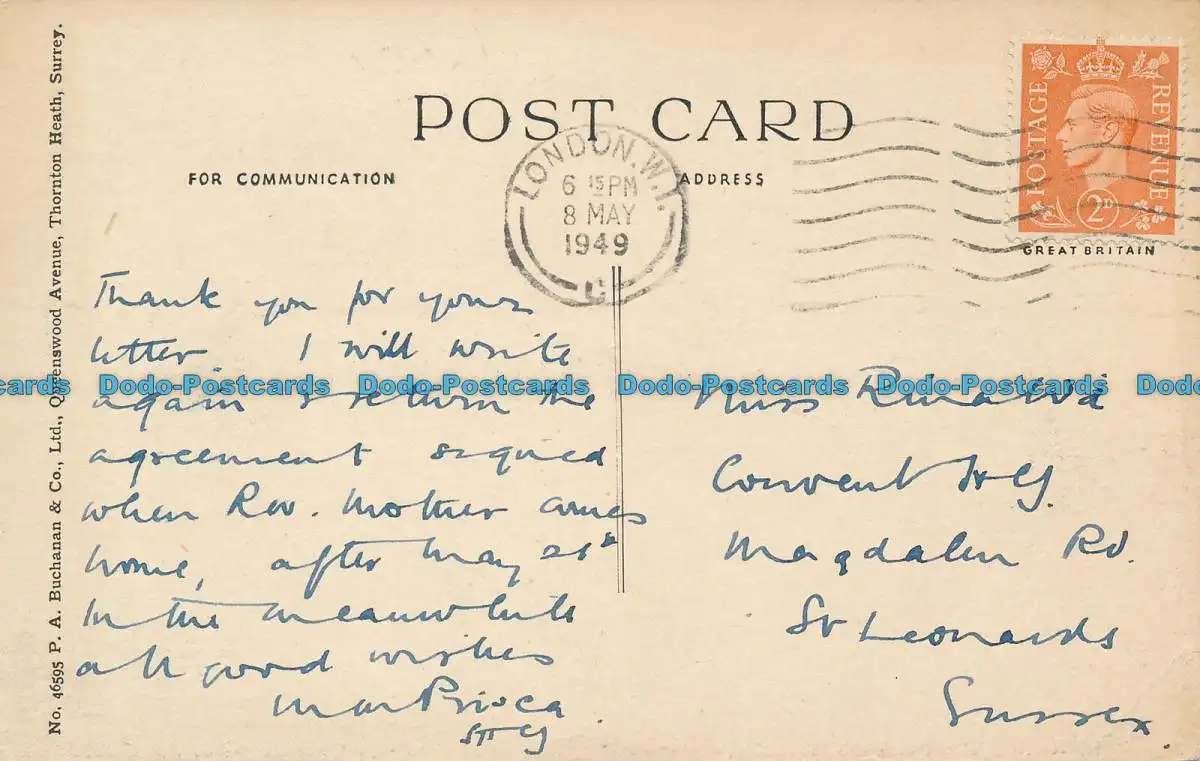 POST CARD
FOR COMMUNICATION
ADDRESS
LONDON. W.1.
6 15 PM
8 MAY
1949
C
POSTAGE
REVENUE
2D
GREAT BRITAIN
Thank you for your
letter. I will write
again & return the
agreement signed
when Rev. Mother comes
home, after May 21st
In the meanwhile
all good wishes
Prisca
Miss
Convent
Magdalen Rd.
St Leonards
Sussex
No. 46595 P. A. Buchanan & Co., Ltd., Queenswood Avenue, Thornton Heath, Surrey.
Dodo-Postcards Dodo-Postcards Dodo-Postcards Dodo-Postcards